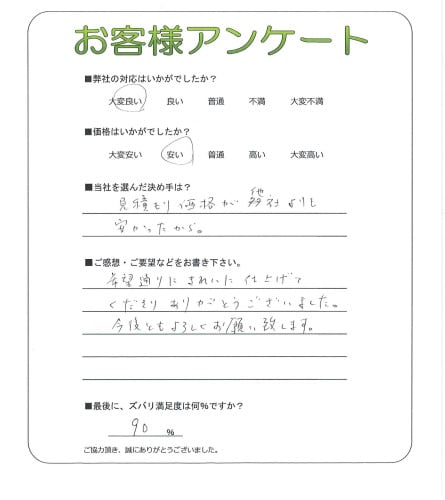 お客様アンケート
■弊社の対応はいかがでしたか？
大変良い 良い 普通 不満 大変不満
■価格はいかがでしたか？
大変安い 安い 普通 高い 大変高い
■当社を選んだ決め手は？
見積もり価格が他社よりも
安かったから。
■ご感想・ご要望などをお書き下さい。
希望通りにきれいに仕上げて
くださり ありがとうございました。
今後ともよろしくお願い致します。
■最後に、ズバリ満足度は何%ですか？
90 %
ご協力頂き、誠にありがとうございました。